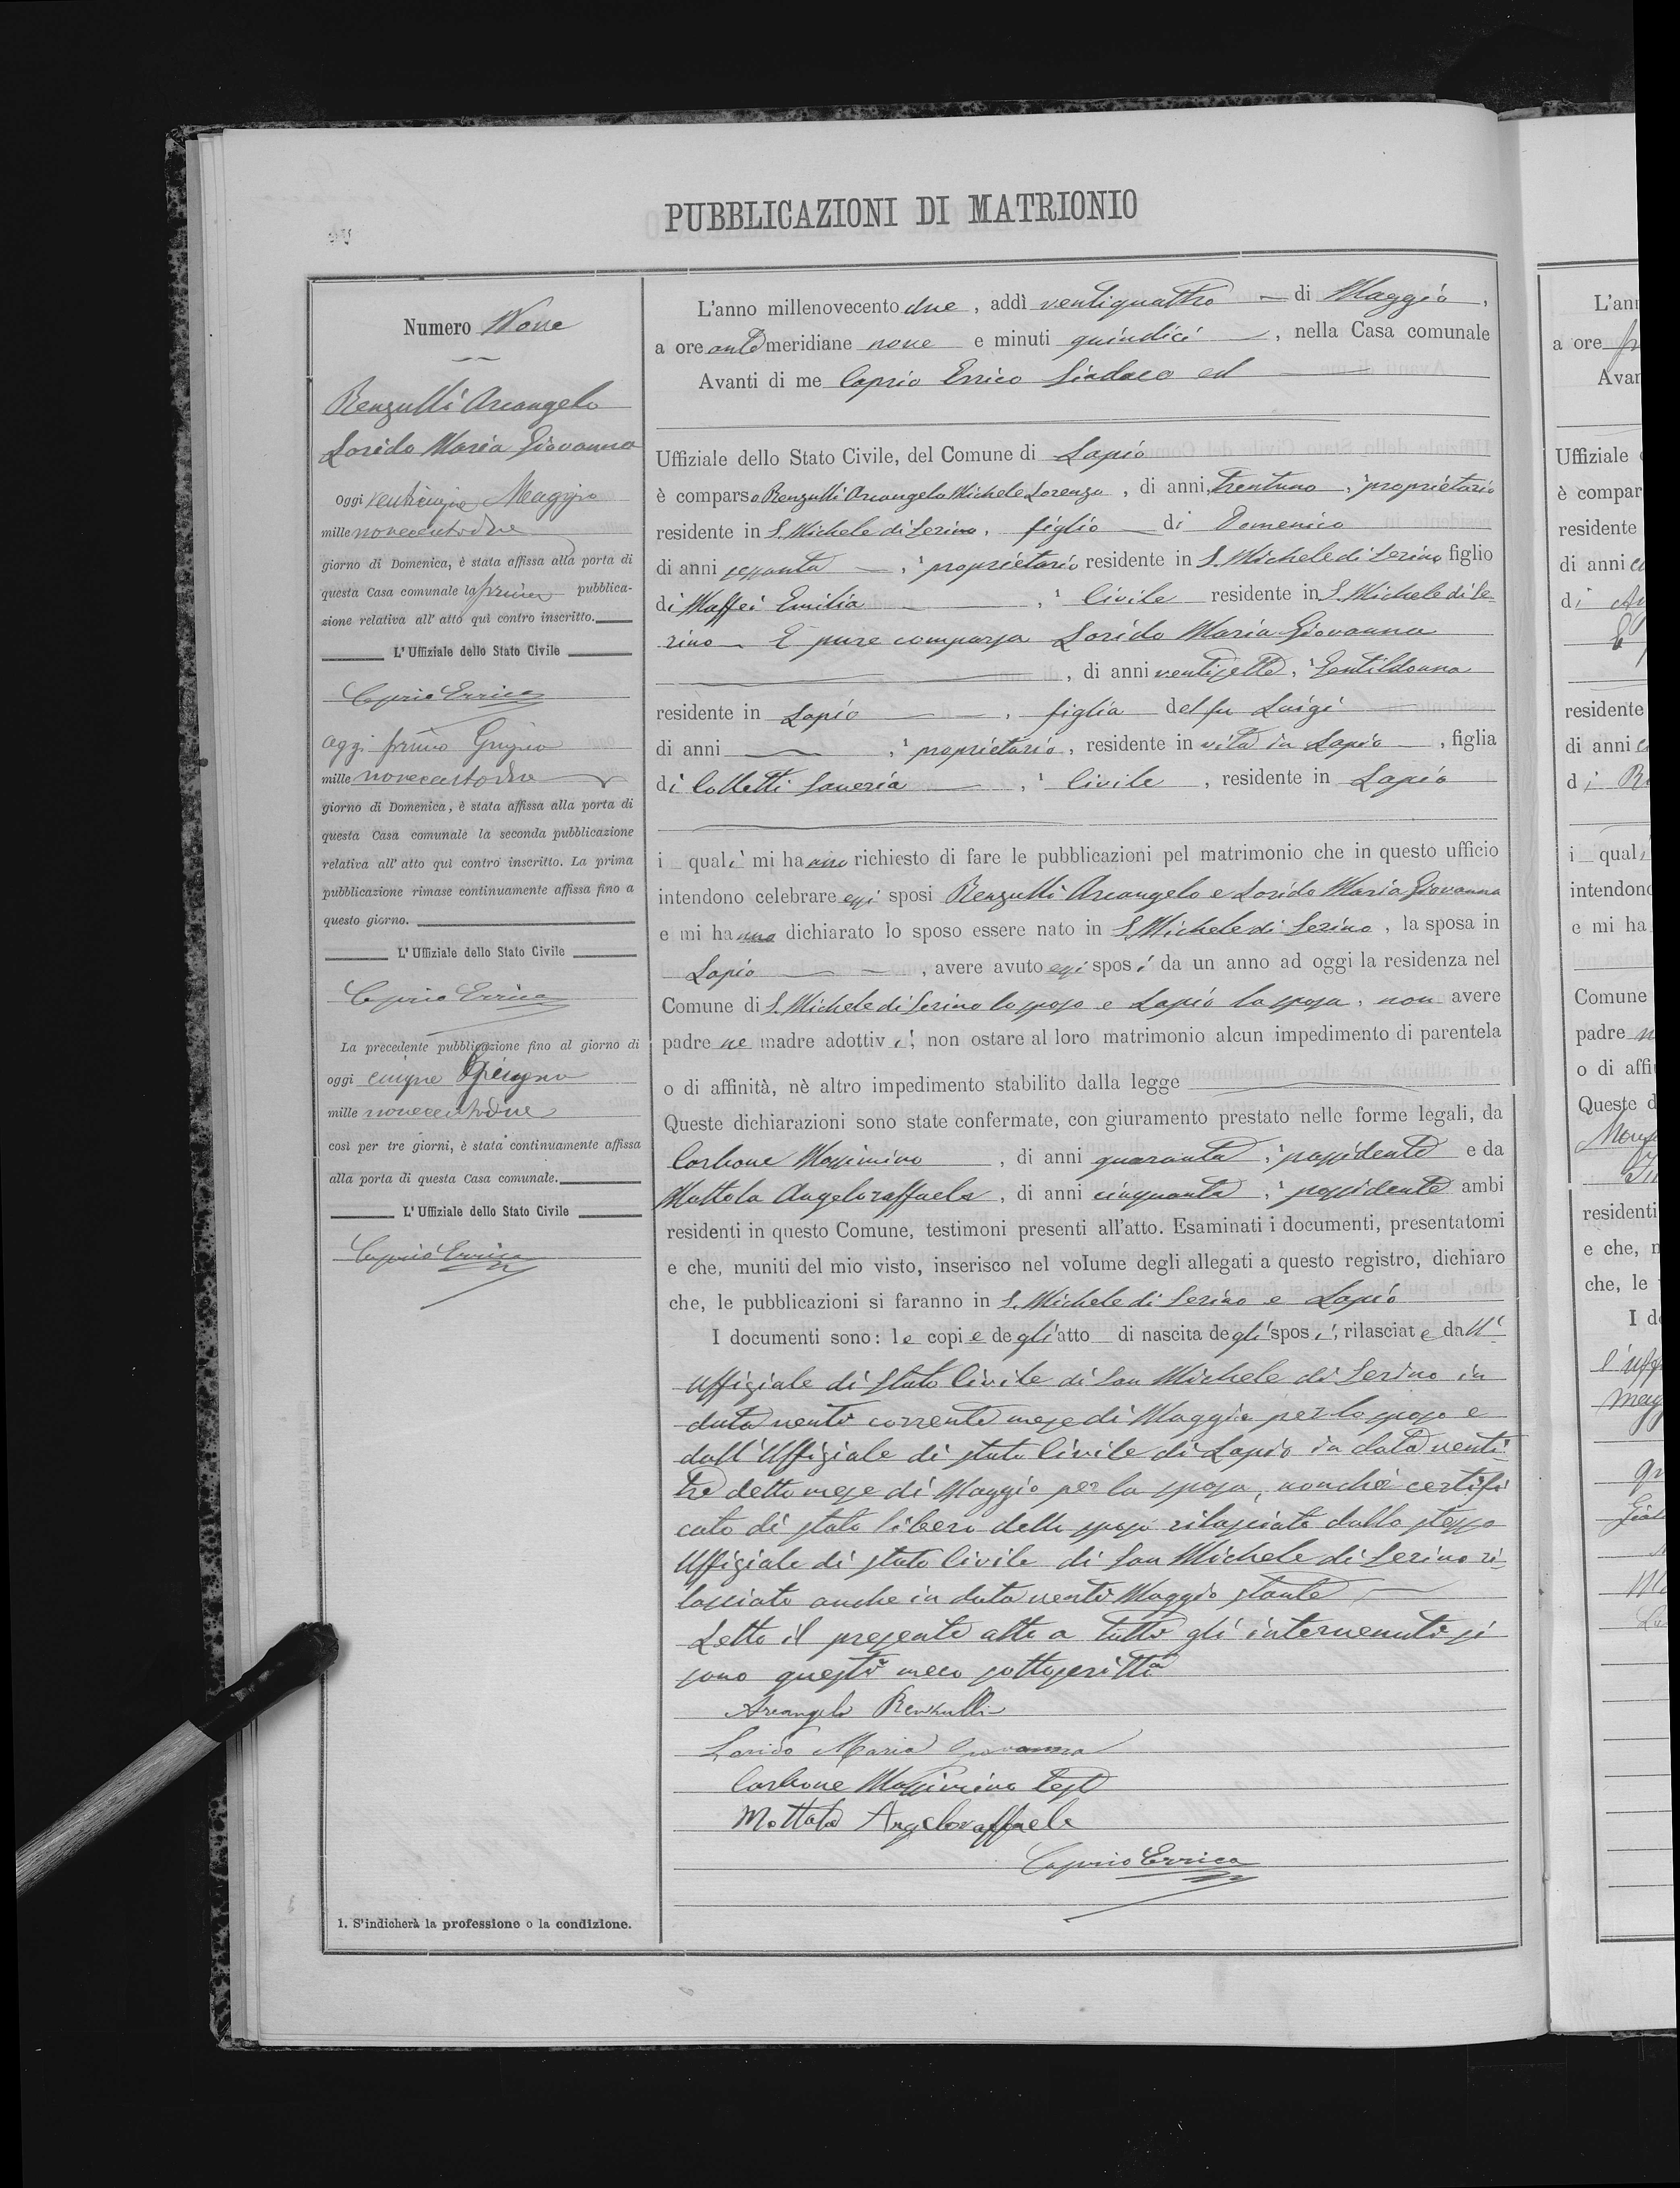 PUBBLICAZIONI DI MATRIONIO
Numero Nove
Renzulli Arcangelo
Lorido Maria Giovanna
Oggi venticinque Maggio
mille novecentodue
giorno di Domenica, è stata affissa alla porta di
questa Casa comunale la prima pubblica-
zione relativa all' atto quì contro inscritto.
L' Uffiziale dello Stato Civile
Caprio Errico
Oggi primo Giugno
mille novecentodue
giorno di Domenica, è stata affissa alla porta di
questa Casa comunale la seconda pubblicazione
relativa all' atto quì contro inscritto. La prima
pubblicazione rimase continuamente affissa fino a
questo giorno.
L' Uffiziale dello Stato Civile
Caprio Errico
La precedente pubblicazione fino al giorno di
oggi cinque Giugno
mille novecentodue
così per tre giorni, è stata continuamente affissa
alla porta di questa Casa comunale.
L' Uffiziale dello Stato Civile
Caprio Errico
1. S'indicherà la professione o la condizione.
L'anno millenovecento due, addì ventiquattro di Maggio,
a ore antemeridiane nove e minuti quindici, nella Casa comunale
Avanti di me Caprio Errico Sindaco ed
Uffiziale dello Stato Civile, del Comune di Lapio
è comparso Renzulli Arcangelo Michele Lorenzo, di anni trentuno, ¹ proprietario
residente in S. Michele di Serino, figlio di Domenico
di anni sessanta, ¹ proprietario residente in S. Michele di Serino figlio
di Maffei Emilia, ¹ Civile residente in S. Michele di Se-
rino È pure comparsa Lorido Maria Giovanna
, di anni ventisette, ¹ Gentildonna
residente in Lapio, figlia del fu Luigi
di anni , ¹ proprietario, residente in vita in Lapio, figlia
di Colletti Saveria, ¹ Civile, residente in Lapio
i quali mi hanno richiesto di fare le pubblicazioni pel matrimonio che in questo ufficio
intendono celebrare essi sposi Renzulli Arcangelo e Lorido Maria Giovanna
e mi hanno dichiarato lo sposo essere nato in S. Michele di Serino, la sposa in
Lapio, avere avuto essi sposi da un anno ad oggi la residenza nel
Comune di S. Michele di Serino lo sposo e Lapio la sposa, non avere
padre ne madre adottivi, non ostare al loro matrimonio alcun impedimento di parentela
o di affinità, nè altro impedimento stabilito dalla legge
Queste dichiarazioni sono state confermate, con giuramento prestato nelle forme legali, da
Carbone Massimino, di anni quaranta, ¹ possidente e da
Mottola Angeloraffaele, di anni cinquanta, ¹ possidente ambi
residenti in questo Comune, testimoni presenti all'atto. Esaminati i documenti, presentatomi
e che, muniti del mio visto, inserisco nel volume degli allegati a questo registro, dichiaro
che, le pubblicazioni si faranno in S. Michele di Serino e Lapio
I documenti sono: le copie degli atto di nascita degli sposi, rilasciate dall'
Uffiziale di stato Civile di San Michele di Serino in
data venti corrente mese di Maggio per lo sposo e
dall'Uffiziale di stato Civile di Lapio in data venti-
tre detto mese di Maggio per la sposa, nonchè certifi
cato di stato libero dello sposo rilasciato dallo stesso
Uffiziale di stato Civile di San Michele di Serino ri-
lasciato anche in data venti Maggio stante
Letto il presente atto a tutti gli intervenuti si
sono questi meco sottoscritti
Arcangelo Renzulli
Lorido Maria Giovanna
Carbone Massimino test
Mottola Angeloraffaele
Caprio Errico
L'an
a ore
Avan
Uffiziale
è compar
residente
di anni
di
residente
di anni
di
i qual
intendono
e mi ha
Comune
padre
o di affi
Queste d
residenti
e che, m
che, le
I d